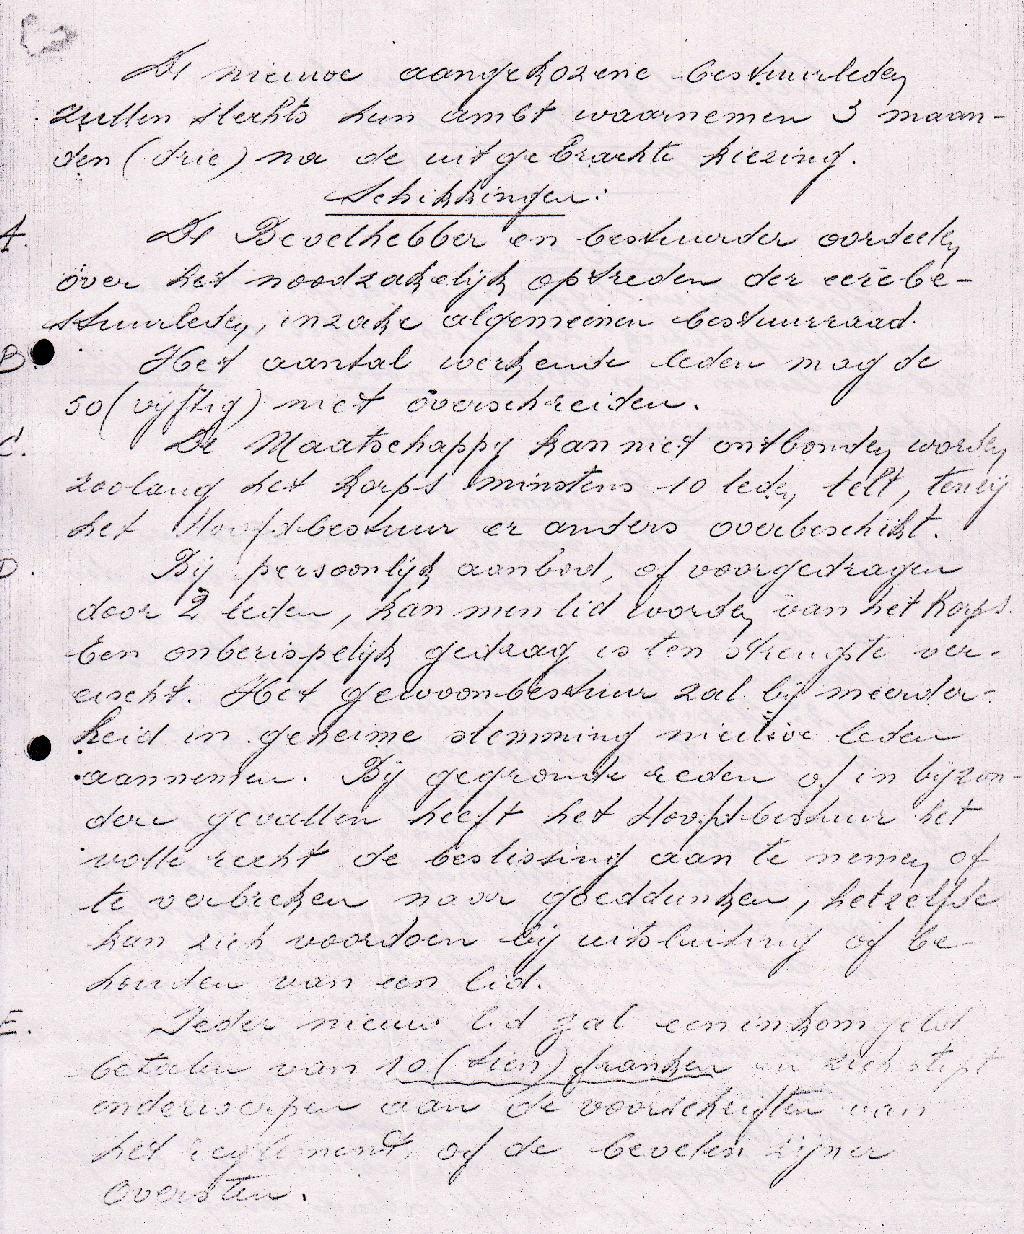 De nieuwe aangekozene bestuurleden
zullen slechts hun ambt waarnemen 3 maan-
den (drie) na de uitgebrachte kiezing.
Schikkingen:
A. De Bevelhebber en bestuurder oordeelen
over het noodzakelijk optreden der eerebe-
stuurleden, inzake algemeenen bestuurraad.
B. Het aantal werkende leden mag de
50 (vijftig) niet overschreiden.
C. De Maatschappy kan niet ontbonden worden
zoolang het korps minstens 10 leden telt, tenzij
het Hoofdbestuur er anders overbeschikt.
D. Bij persoonlijk aanbod, of voorgedragen
door 2 leden, kan men lid worden van het Korps.
Een onberispelijk gedrag is ten strengste ver-
eischt. Het gewoonbestuur zal bij meerder-
heid in geheime stemming nieuwe leden
aannemen. Bij gegronde reden of in bijzon-
dere gevallen heeft het Hoofdbestuur het
volle recht de beslissing aan te nemen of
te verbreken naar goeddunken, hetzelfde
kan zich voordoen bij uitsluiting of be-
houden van een lid.
E. Ieder nieuw lid zal een inkomgeld
betalen van 10 (tien) franken en zich stipt
onderwerpen aan de voorschriften van
het reglement, of de bevelen zijner
Oversten.